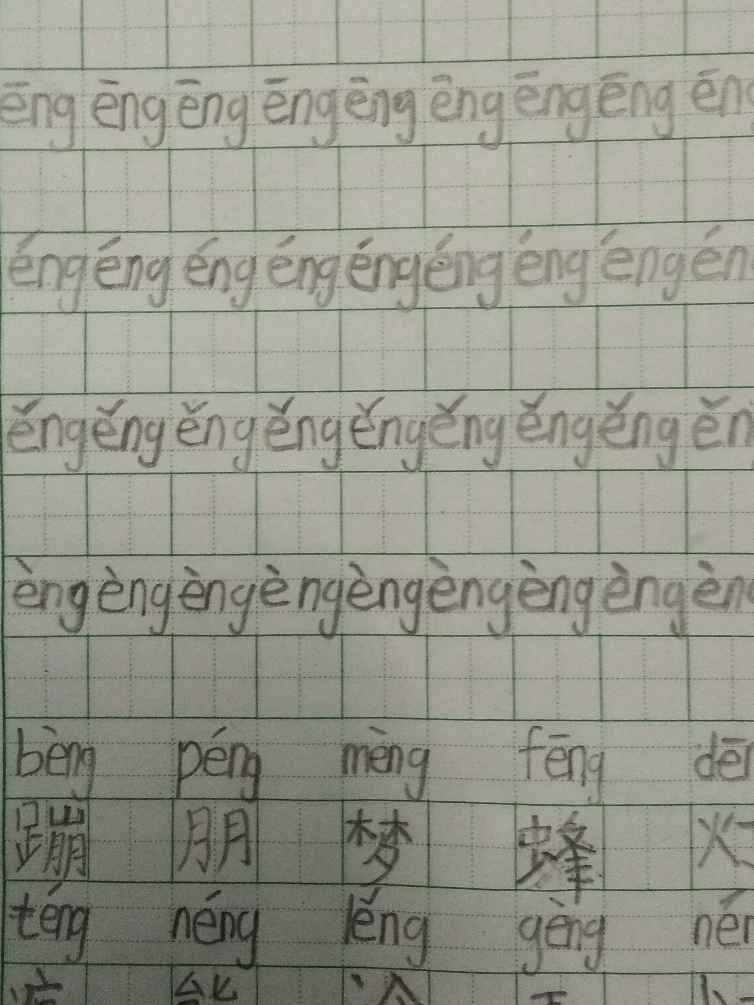 ēng ēng ēng ēng ēng ēng ēng ēng ēng
éng éng éng éng éng éng éng éng én
ěng ěng ěng ěng ěng ěng ěng ěng ěn
èng èng èng èng èng èng èng èng èng
bèng péng mèng fēng dē
蹦 朋 梦 蜂
téng néng lěng gèng né